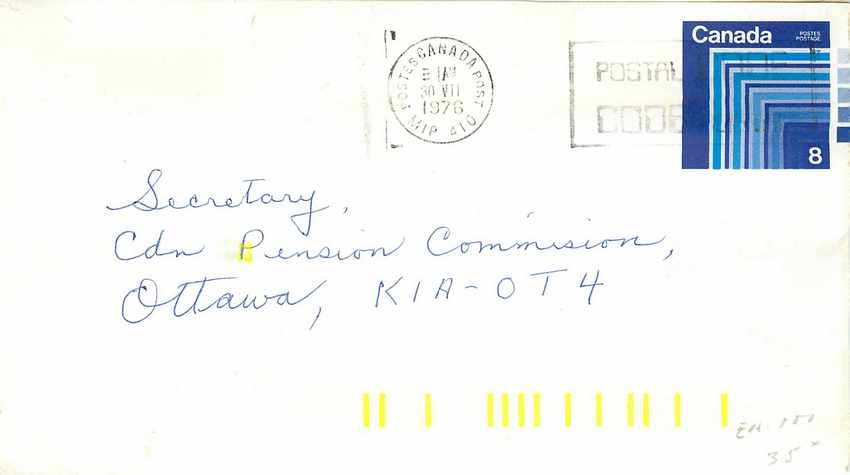 Canada POSTES
POSTAGE
8
POSTES CANADA POST
30 VII
1976
POSTAL CODE
CODE
Secretary,
Cdn Pension Commision,
Ottawa, K1A-0T4
35